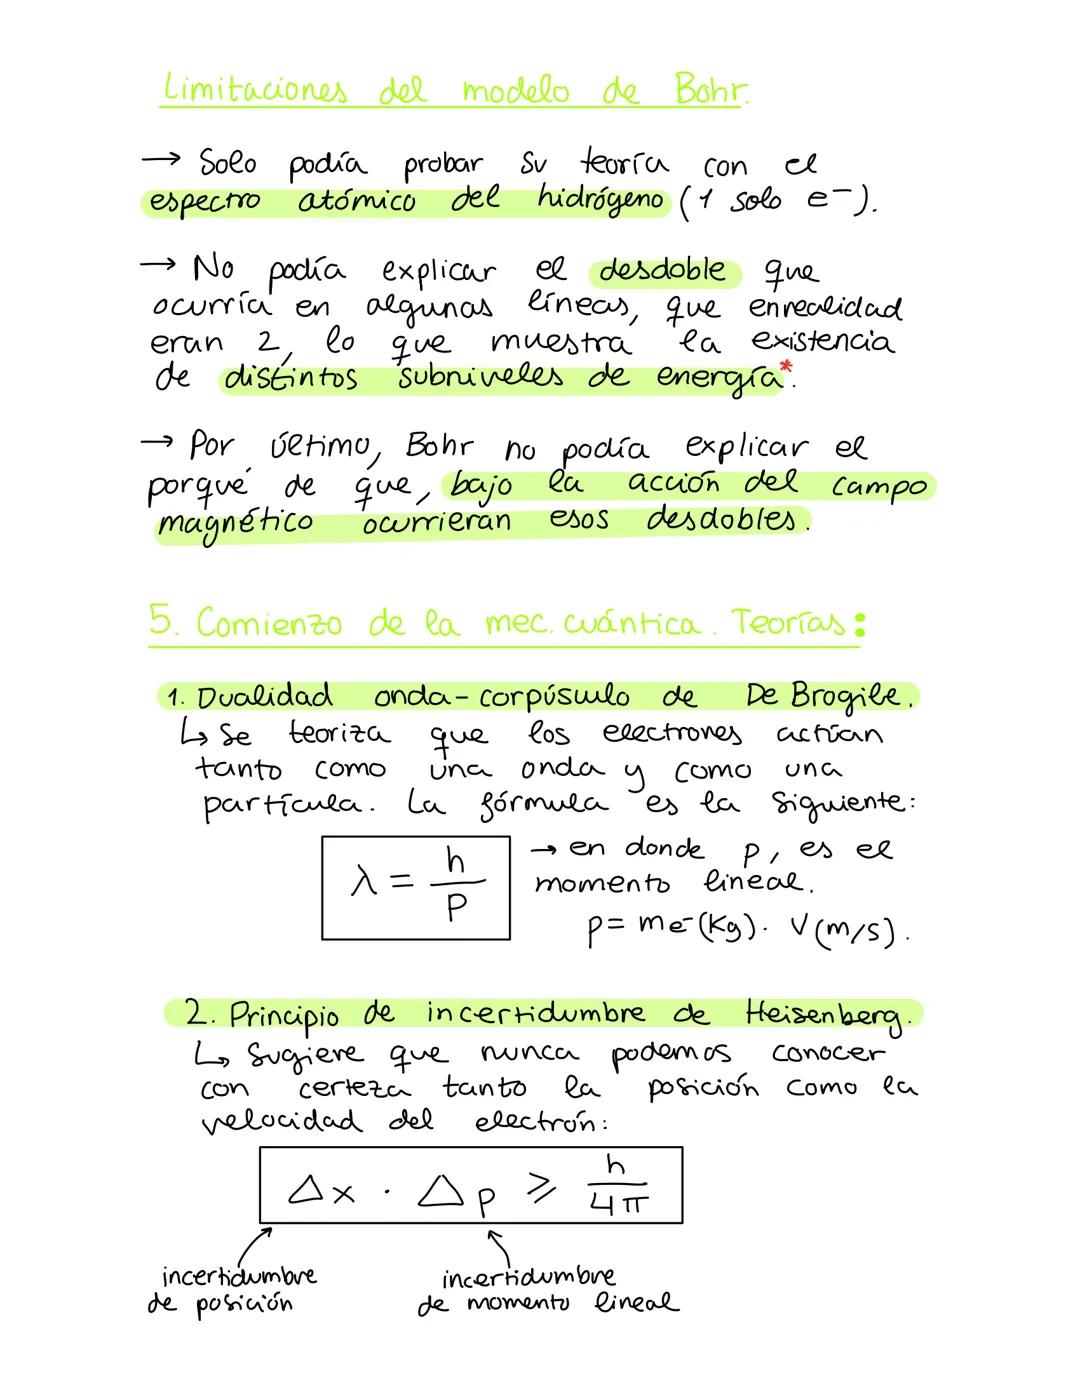 Limitaciones del modelo de Bohr.
→ Solo podía probar su teoría con el
espectro atómico del hidrógeno (1 solo e⁻).
→ No podía explicar el desdoble que
ocurría en algunas líneas, que enrealidad
eran 2, lo que muestra la existencia
de distintos subniveles de energía*.
→ Por último, Bohr no podía explicar el
porqué de que, bajo la acción del campo
magnético ocurrieran esos desdobles.
5. Comienzo de la mec. cuántica. Teorías:
1. Dualidad onda-corpúsculo de De Brogile.
↳ Se teoriza que los electrones actúan
tanto como una onda y como una
partícula. La fórmula es la siguiente:
λ = h/P
→ en donde p, es el
momento lineal.
p= me⁻(Kg). V(m/s).
2. Principio de incertidumbre de Heisenberg.
↳ Sugiere que nunca podemos conocer
con certeza tanto la posición como la
velocidad del electrón:
Δx · Δp ⩾ h/4π
incertidumbre
de posición
incertidumbre
de momento lineal